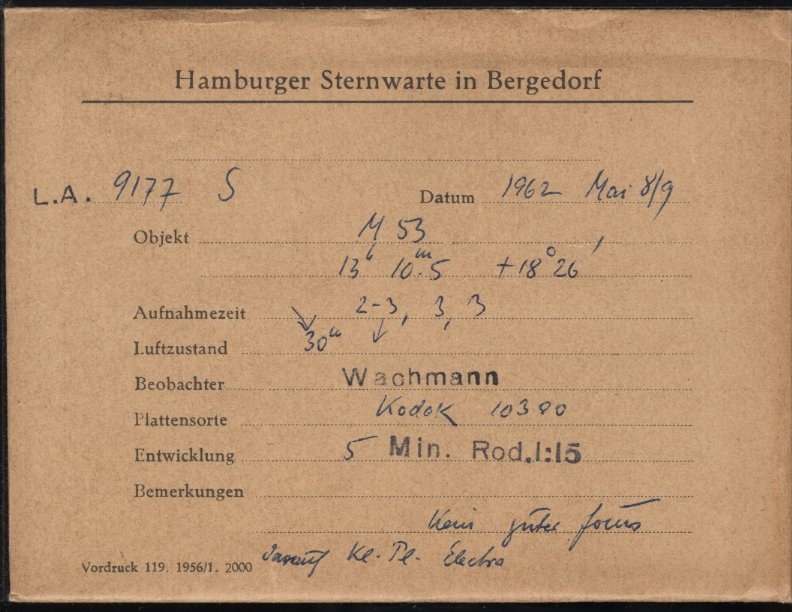 Hamburger Sternwarte in Bergedorf
L.A. 9177 S Datum 1962 Mai 8/9
Objekt M 53
13h 10m.5 +18°26'
Aufnahmezeit 2-3, 3, 3
Luftzustand 30m
Beobachter Wachmann
Plattensorte Kodak 103a0
Entwicklung 5 Min. Rod.1:15
Bemerkungen
Kein guter focus
Vordruck 119. 1956/1. 2000 darauf Kl. Pl. Electra